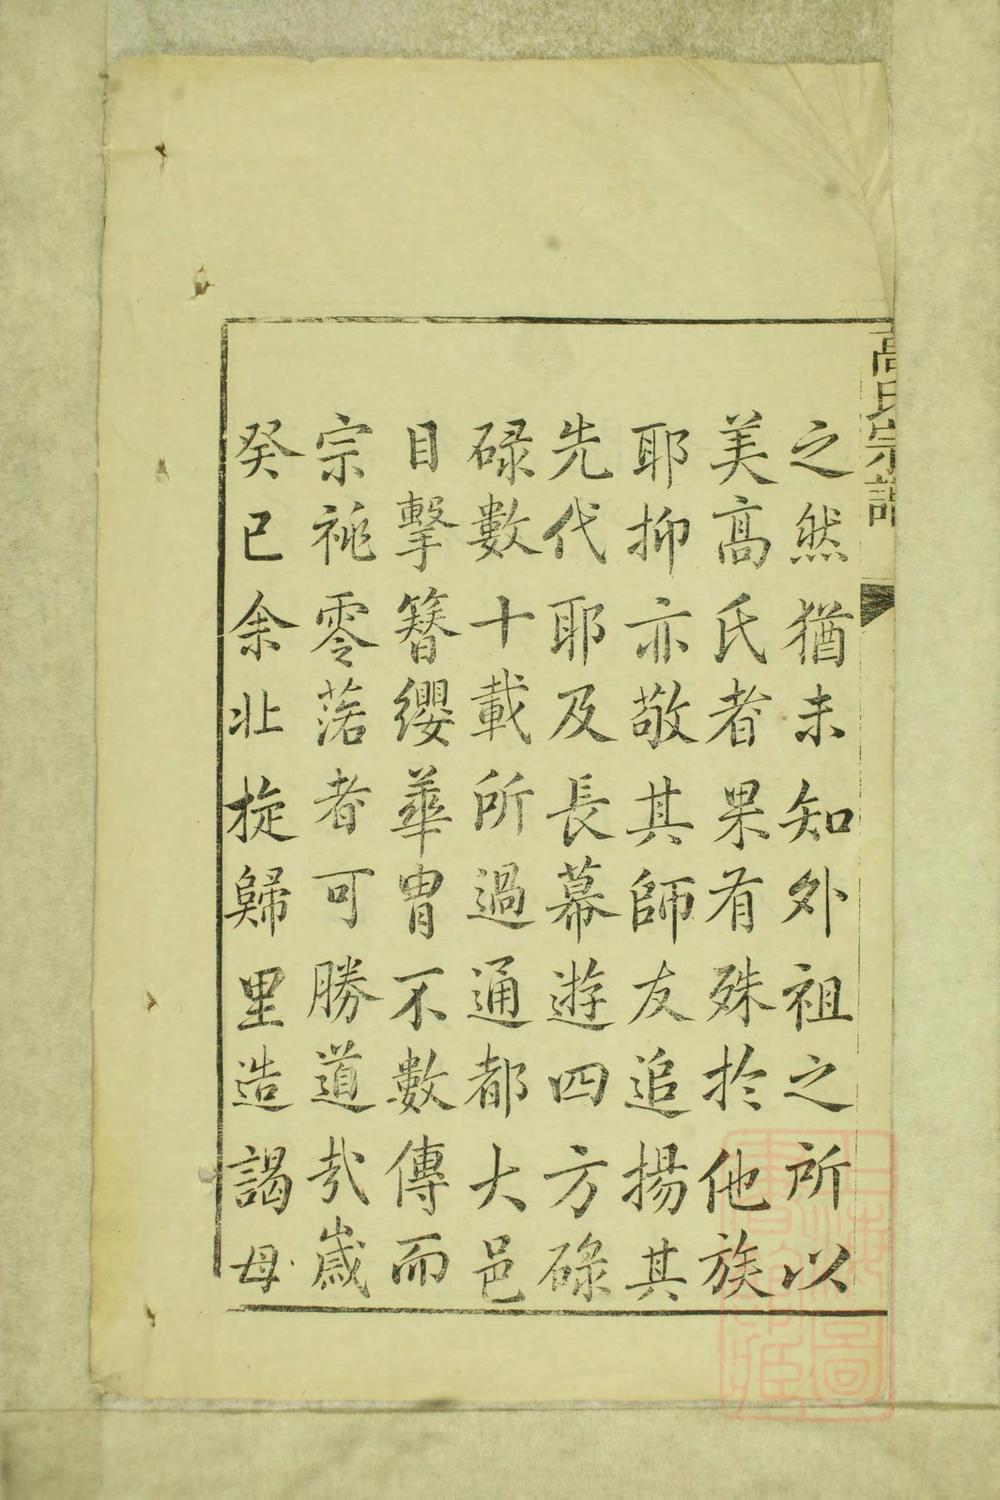 高氏宗譜
之然猶未知外祖之所以
美高氏者果有殊於他族
耶抑亦敬其師友追揚其
先代耶及長幕遊四方碌
碌數十載所過通都大邑
目擊簪纓華胄不數傳而
宗祧零落者可勝道哉歲
癸巳余北旋歸里造謁母